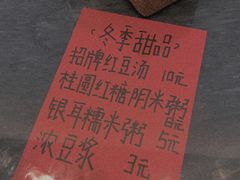 〈冬季甜品〉
招牌红豆汤 10元
桂圆红糖阴米粥
8元
银耳糯米粥 5元
浓豆浆 3元